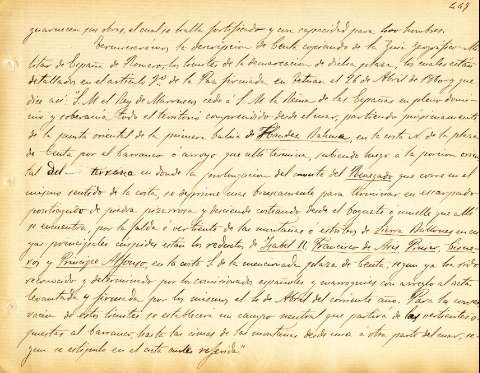 449
guarnecen sus obras, el cual se halla fortificado y con capacidad para 400 hombres.
Terminaremos la descripcion de Ceuta copiando de la Guia Geográfico-Mi
litar de España de Romero, los limites de la demarcacion de dicha plaza, los cuales están
detallados en el artículo 3º de la Paz firmada en Tetuan el 26 de Abril de 1860 y que
dice así: "S. M. el Rey de Marruecos cede á S. M. la Reina de las Españas en pleno domi-
nio y soberanía todo el territorio comprendido desde el mar, partiendo próximamente
de la punta oriental de la primera bahia de Handaz Rahma, en la costa N. de la plaza
de Ceuta por el barranco ó arroyo que allí termina, subiendo luego a la porcion orien
tal del terreno en donde la prolongacion del monte del Renegado que corre en el
mismo sentido de la costa, se deprime mas bruscamente para terminar en escarpado
puntiagudo de piedra pizarrosa y desciende costeando desde el boquete ó cuello que allí
se encuentra, por la falda ó vertiente de las montañas ó estribos de Sierra Bullones en cu
yas principales cúspides están los reductos de Isabel II, Francisco de Asis, Pinier, Cisne-
ros y Príncipe Alfonso, en la costa S. de la mencionada plaza de Ceuta, segun ya ha sido
reconocido y determinado por los comisionados españoles y marroquies con arreglo al acta
levantada y firmada por los mismos el 4 de Abril del corriente año. Para la conser
vacion de estos limites se establecerá un campo neutral que partirá de las vertientes o
puestas al barranco, hasta las cimas de las montañas desde una á otra parte del mar, se-
gun se estipula en el acta antes referida."